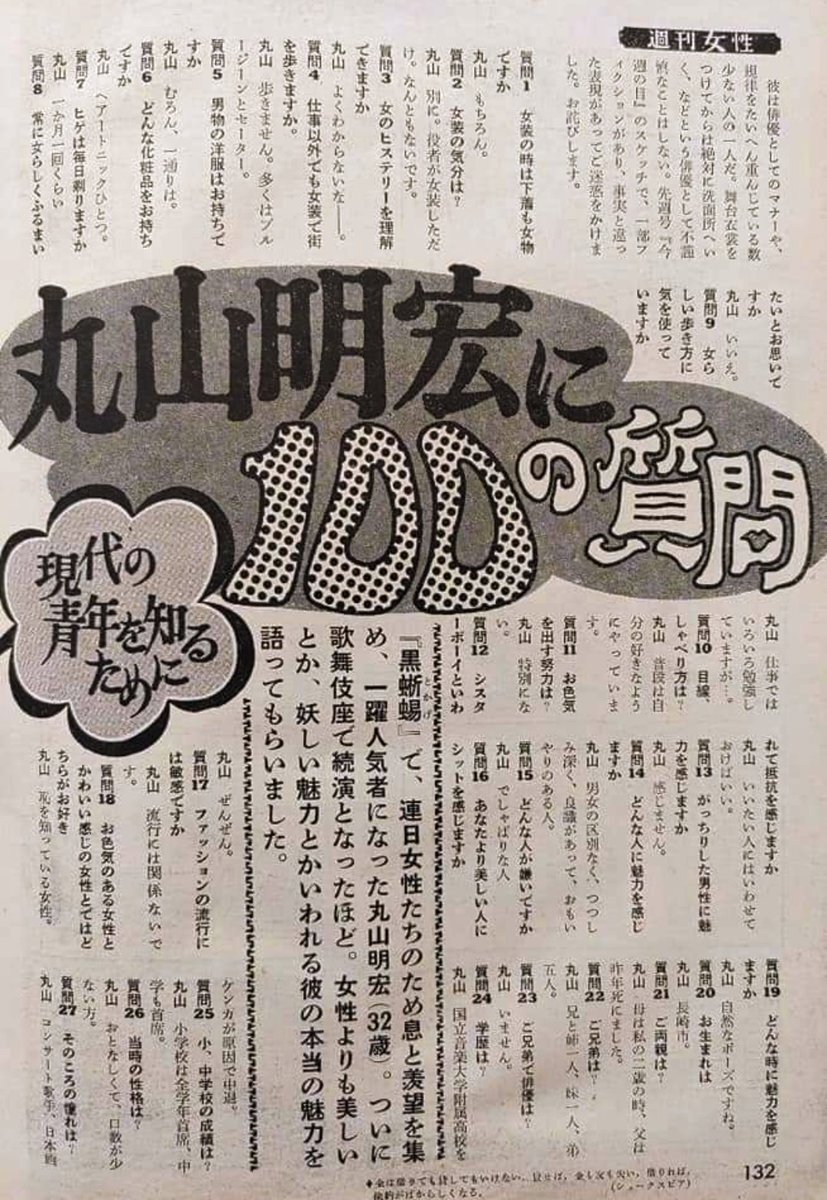 週刊女性
彼は俳優としてのマナーや、
規律をたいへん重んじている数
少ない人の一人だ。舞台衣裳を
つけてからは絶対に洗面所へい
く、などという俳優として不謹
慎なことはしない。先週号『今
週の目』のスケッチで、一部フ
ィクションがあり、事実と違っ
た表現があってご迷惑をかけま
した。お詫びします。
質問1 女装の時は下着も女物
ですか
丸山 もちろん。
質問2 女装の気分は?
丸山 別に。役者が女装しただ
け。なんともないです。
質問3 女のヒステリーを理解
できますか
丸山 よくわからないな――。
質問4 仕事以外でも女装で街
を歩きますか。
丸山 歩きません。多くはブル
ージーンとセーター。
質問5 男物の洋服はお持ちで
すか
丸山 むろん、一通りは。
質問6 どんな化粧品をお持ち
ですか
丸山 ヘアートニックひとつ。
質問7 ヒゲは毎日剃りますか
丸山 一か月一回くらい
質問8 常に女らしくふるまい
たいとお思いで
すか
丸山 いいえ。
質問9 女ら
しい歩き方に
気を使って
いますか
丸山明宏に
100の質問
現代の
青年を知る
ために
丸山 仕事では
いろいろ勉強し
ていますが…。
質問10 目線、
しゃべり方は?
丸山 普段は自
分の好きなよう
にやっていま
す。
質問11 お色気
を出す努力は?
丸山 特別にな
い。
質問12 シスタ
ーボーイといわ
れて抵抗を感じますか
丸山 いいたい人にはいわせて
おけばいい。
質問13 がっちりした男性に魅
力を感じますか
丸山 感じません。
質問14 どんな人に魅力を感じ
ますか
丸山 男女の区別なく、つつし
み深く、良識があって、おもい
やりのある人。
質問15 どんな人が嫌いですか
丸山 でしゃばりな人
質問16 あなたより美しい人に
シットを感じますか
『黒蜥蜴』で、連日女性たちのため息と羨望を集
とかげ
め、一躍人気者になった丸山明宏(32歳)。ついに
歌舞伎座で続演となったほど。女性よりも美しい
とか、妖しい魅力とかいわれる彼の本当の魅力を
語ってもらいました。
丸山 ぜんぜん。
質問17 ファッションの流行に
は敏感ですか
丸山 流行には関係ないで
す。
質問18 お色気のある女性と
かわいい感じの女性とではど
ちらがお好き
丸山 恥を知っている女性。
質問19 どんな時に魅力を感じ
ますか
丸山 自然なポーズですね。
質問20 お生まれは
丸山 長崎市。
質問21 ご両親は?
丸山 母は私の二歳の時、父は
昨年死にました。
質問22 ご兄弟は?
丸山 兄と姉一人、妹一人、弟
五人。
質問23 ご兄弟で俳優は?
丸山 いません。
質問24 学歴は?
丸山 国立音楽大学附属高校を
ケンカが原因で中退。
質問25 小、中学校の成績は?
丸山 小学校は全学年首席、中
学も首席。
質問26 当時の性格は?
丸山 おとなしくて、口数が少
ない方。
質問27 そのころの憧れは?
丸山 コンサート歌手、日本画
◆金は借りても貸してもいけない。貸せば、金も友も失い、借りれば、
倹約がばからしくなる。
(シェークスピア)
132